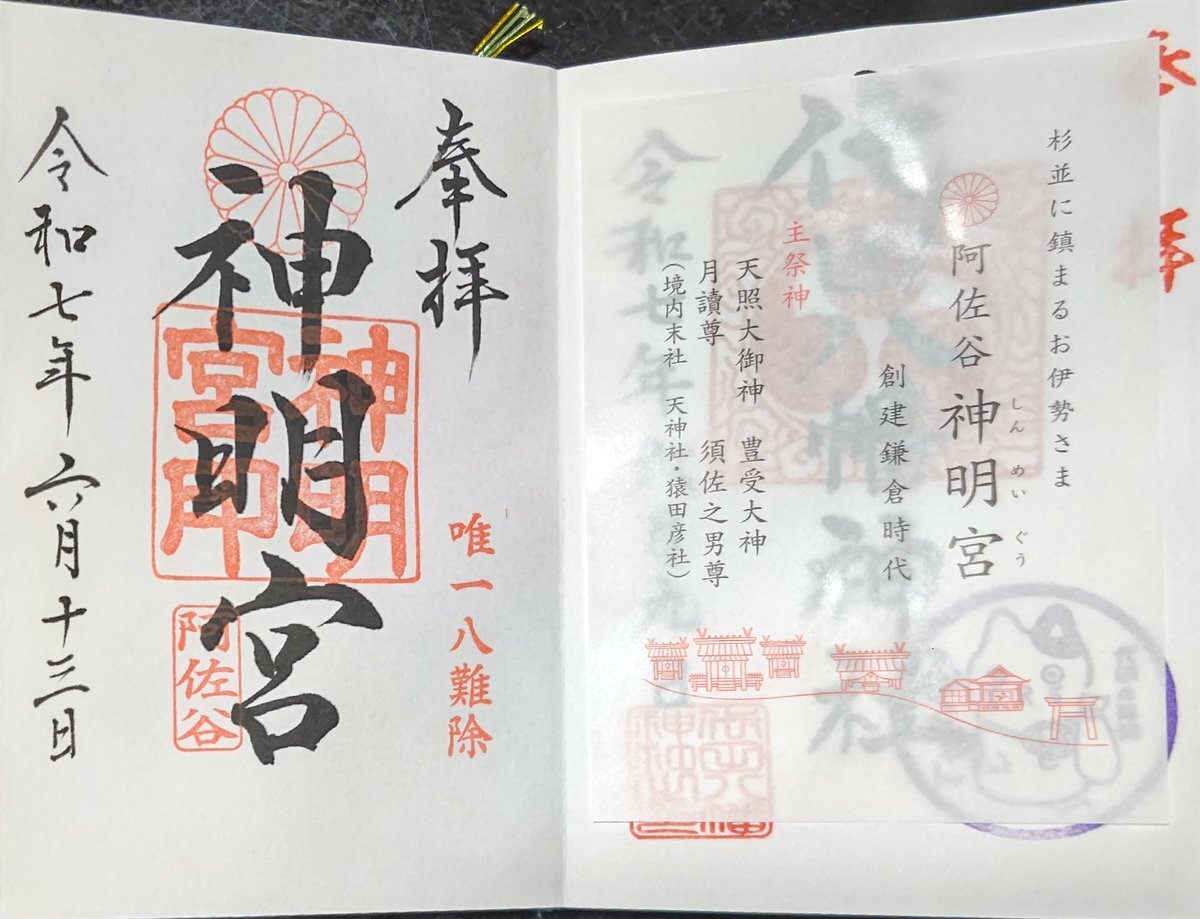 奉拝
杉並に鎮まるお伊勢さま
阿佐谷神明宮
しんめいぐう
創建鎌倉時代
主祭神
天照大御神　豊受大神
月讀尊　須佐之男尊
（境内末社　天神社・猿田彦社）
代田八幡神社
令和七年
奉拝
唯一八難除
神明宮
神明宮印
阿佐谷
令和七年六月十三日